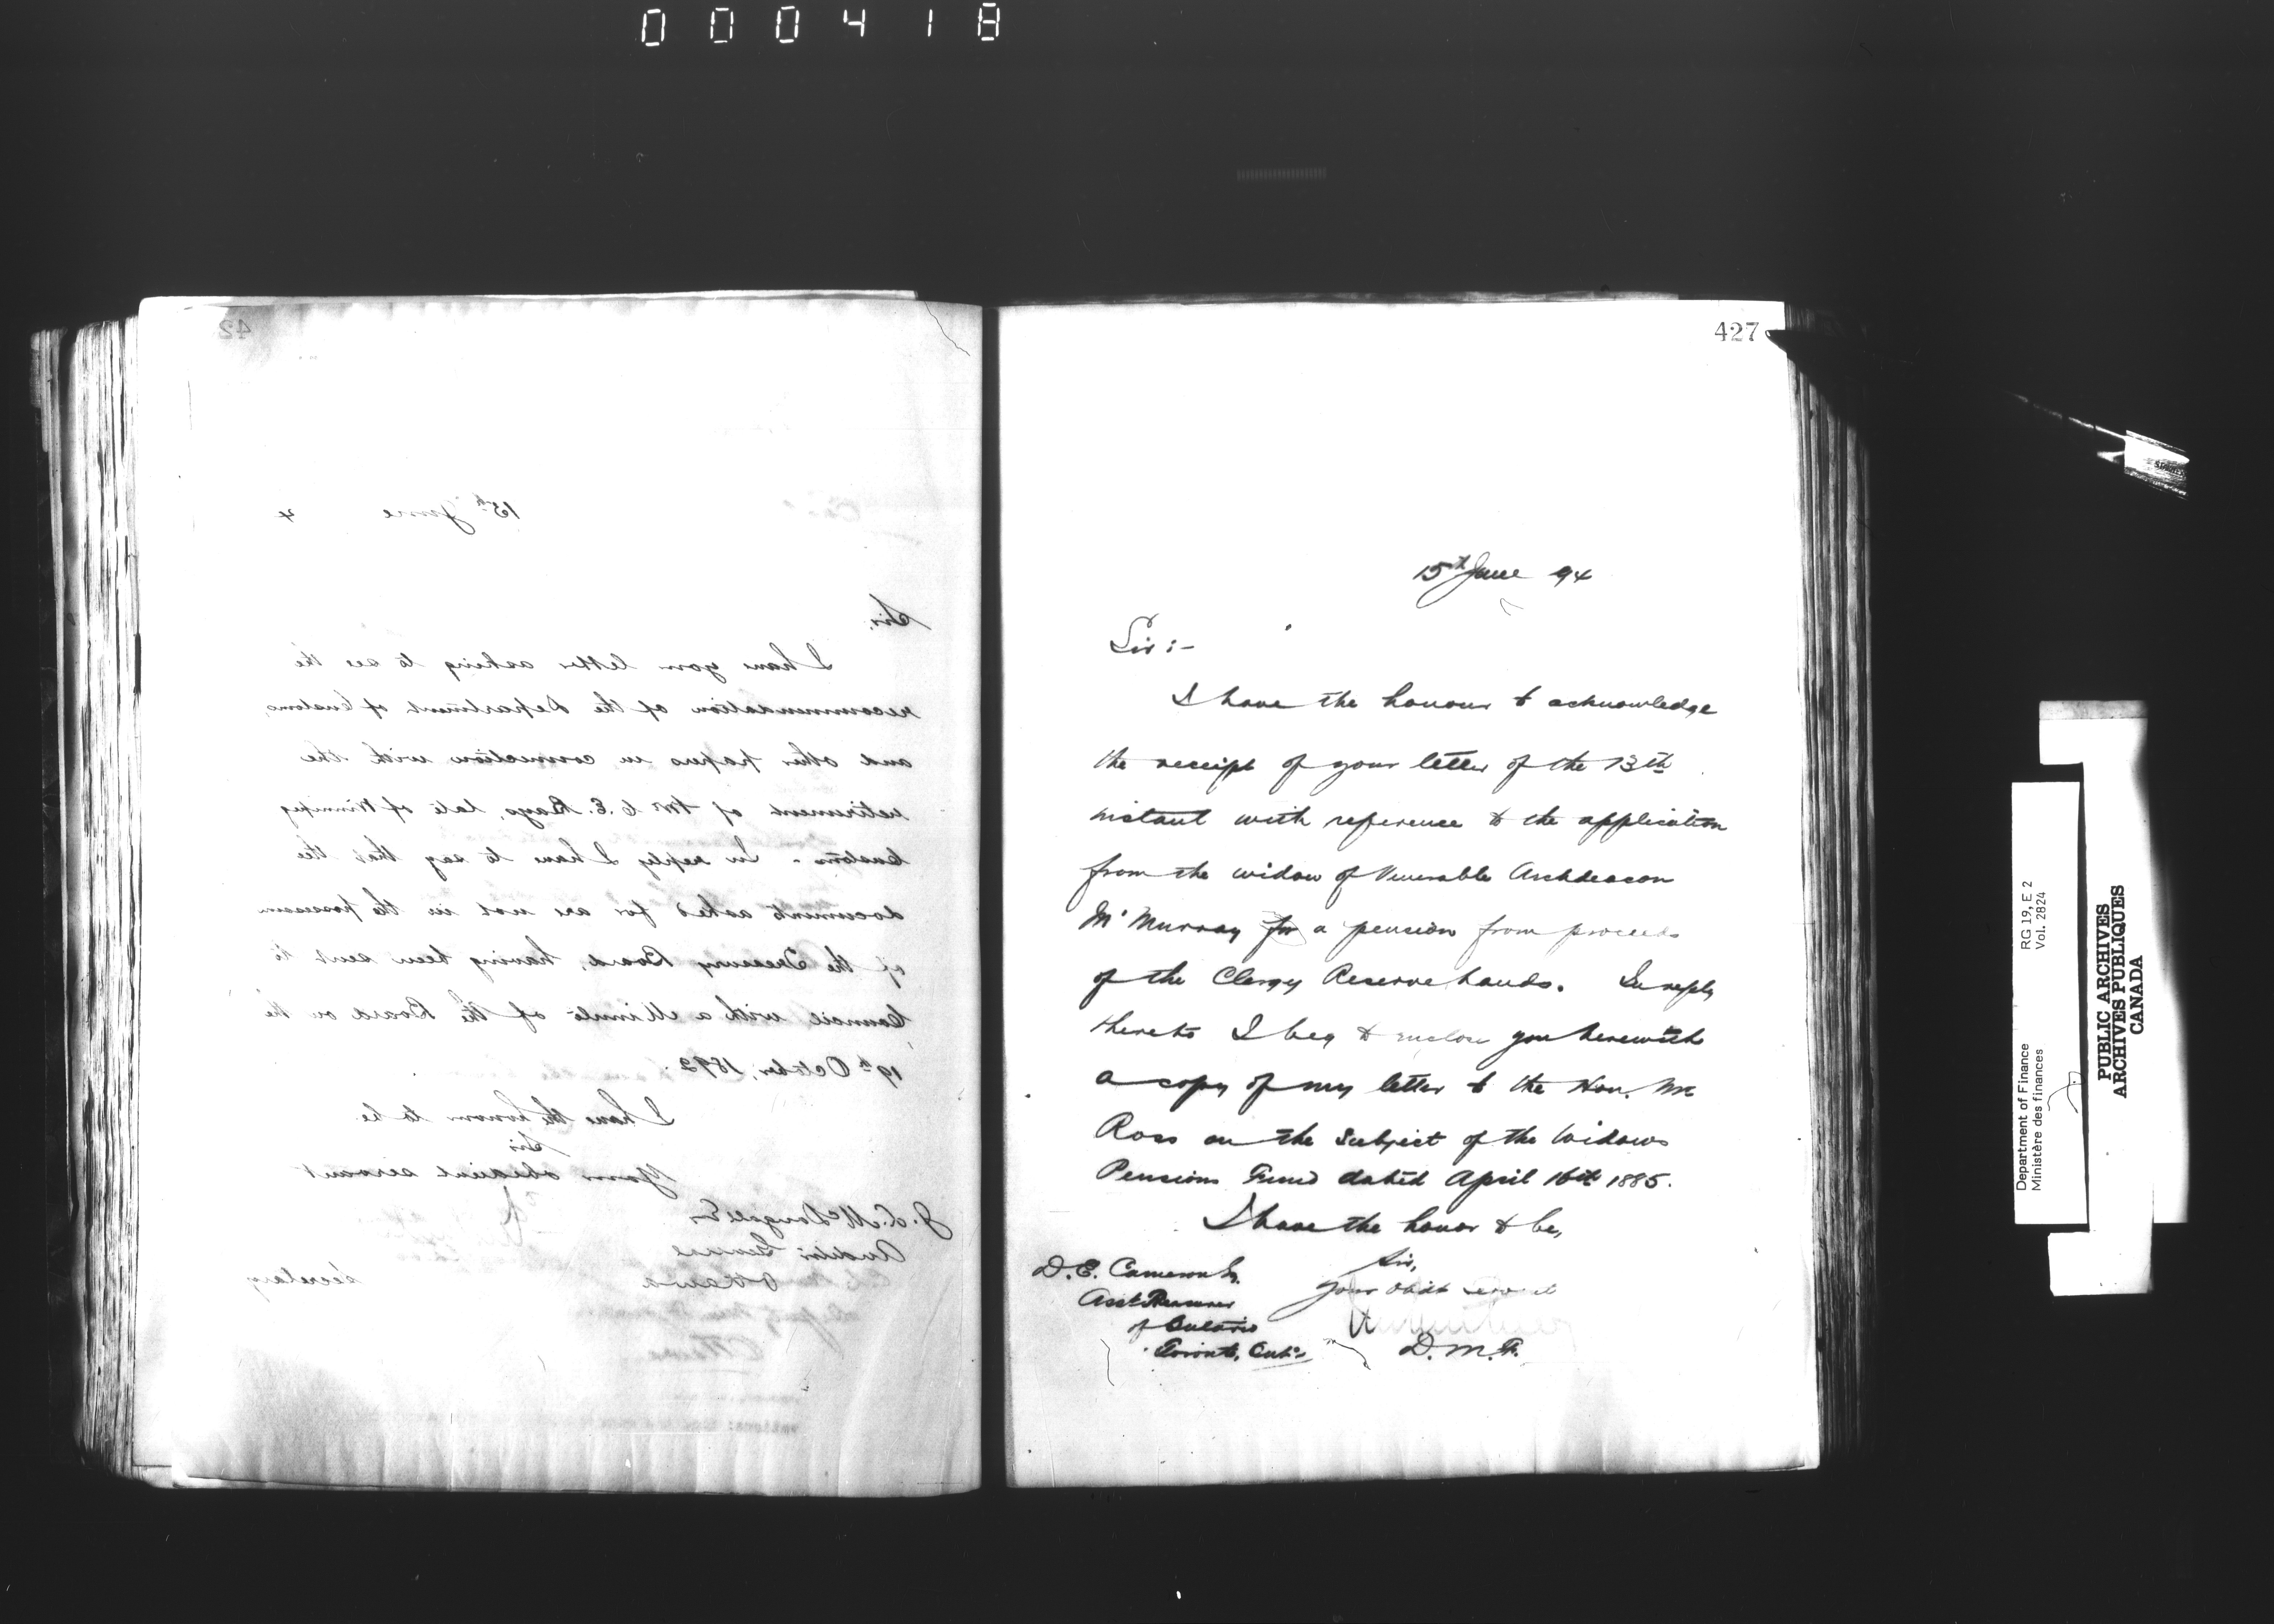 000418
42
15th June 4
Sir,
I have your letter asking to see the
recommendation of the Department of Customs,
and other papers in connection with the
retirement of Mr C. E. late of Winnipeg
Customs. In reply I have to say that the
documents asked for are not in the possession
of the Treasury Board, having been sent to
Council with a Minute of the Board on the
19th October, 1892.
I have the honour to be
Sir
Your obedient servant
J. L. McDougall Esq
Auditor General
Ottawa
Secretary
427
15th June 94
Sir :-
I have the honour to acknowledge
the receipt of your letter of the 13th
instant with reference to the application
from the widow of Venerable Archdeacon
McMurray for a pension from proceeds
of the Clergy Reserve lands. In reply
thereto I beg to enclose you herewith
a copy of my letter to the Hon. Mr
Ross on the subject of the Widows
Pensions Fund dated April 16th 1885.
I have the honor to be,
Sir,
Your obdt servant
D. M. F.
D. E. Cameron Esq.
Asst Treasurer
of Ontario
Toronto, Ont.
Department of Finance RG 19, E 2
Ministère des finances Vol. 2824
PUBLIC ARCHIVES
ARCHIVES PUBLIQUES
CANADA